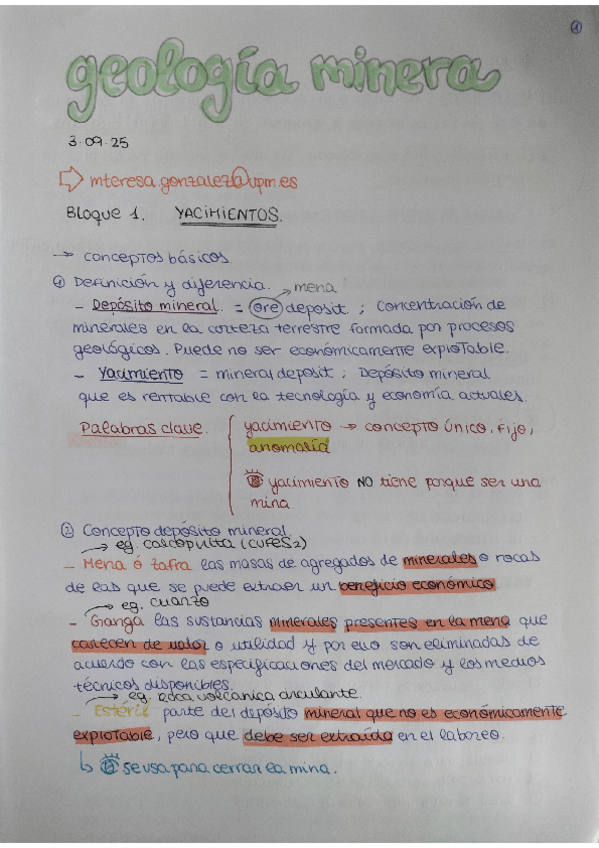 1
geología minera
3.09.25
mteresa.gonzalez@upm.es
Bloque 1. YACIMIENTOS.
→ conceptos básicos.
① Definición y diferencia.
→ mena
- Depósito mineral. = ore deposit ; Concentración de
minerales en la corteza terrestre formada por procesos
geológicos. Puede no ser económicamente explotable.
- Yacimiento = mineral deposit ; Depósito mineral
que es rentable con la tecnología y economía actuales.
Palabras clave.
yacimiento → concepto único, fijo,
anomalía
yacimiento NO tiene porque ser una
mina.
② Concepto depósito mineral.
→ eg. calcopirita (CuFeS2)
- Mena ó zafra las masas de agregados de minerales o rocas
de las que se puede extraer un beneficio económico.
→ eg. cuarzo
- Ganga las sustancias minerales presentes en la mena que
carecen de valor o utilidad y por ello son eliminadas de
acuerdo con las especificaciones del mercado y los medios
técnicos disponibles.
→ eg. roca volcánica circulante.
- Estéril parte del depósito mineral que no es económicamente
explotable, pero que debe ser extraída en el laboreo.
↳ se usa para cerrar la mina.